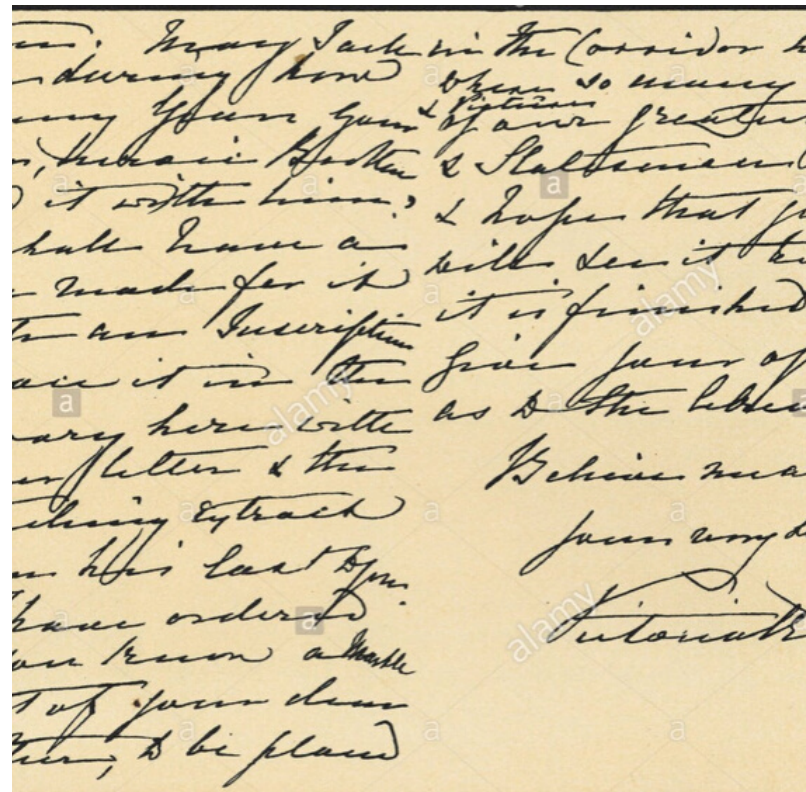 May I ask
during how
years your
heroic Brother
it with him?
hall have a
made for it
an Inscription
it in the
here with
letter & the
extract
his last to you.
have ordered
know a Marble
t of your dear
to be placed
in the Corridor h
where so many
& Pictures
of our greatest
& Statesmen
& hope that
will see it
it is finished
give your op
as to the liken
Believe me a
yours very
Victoria R